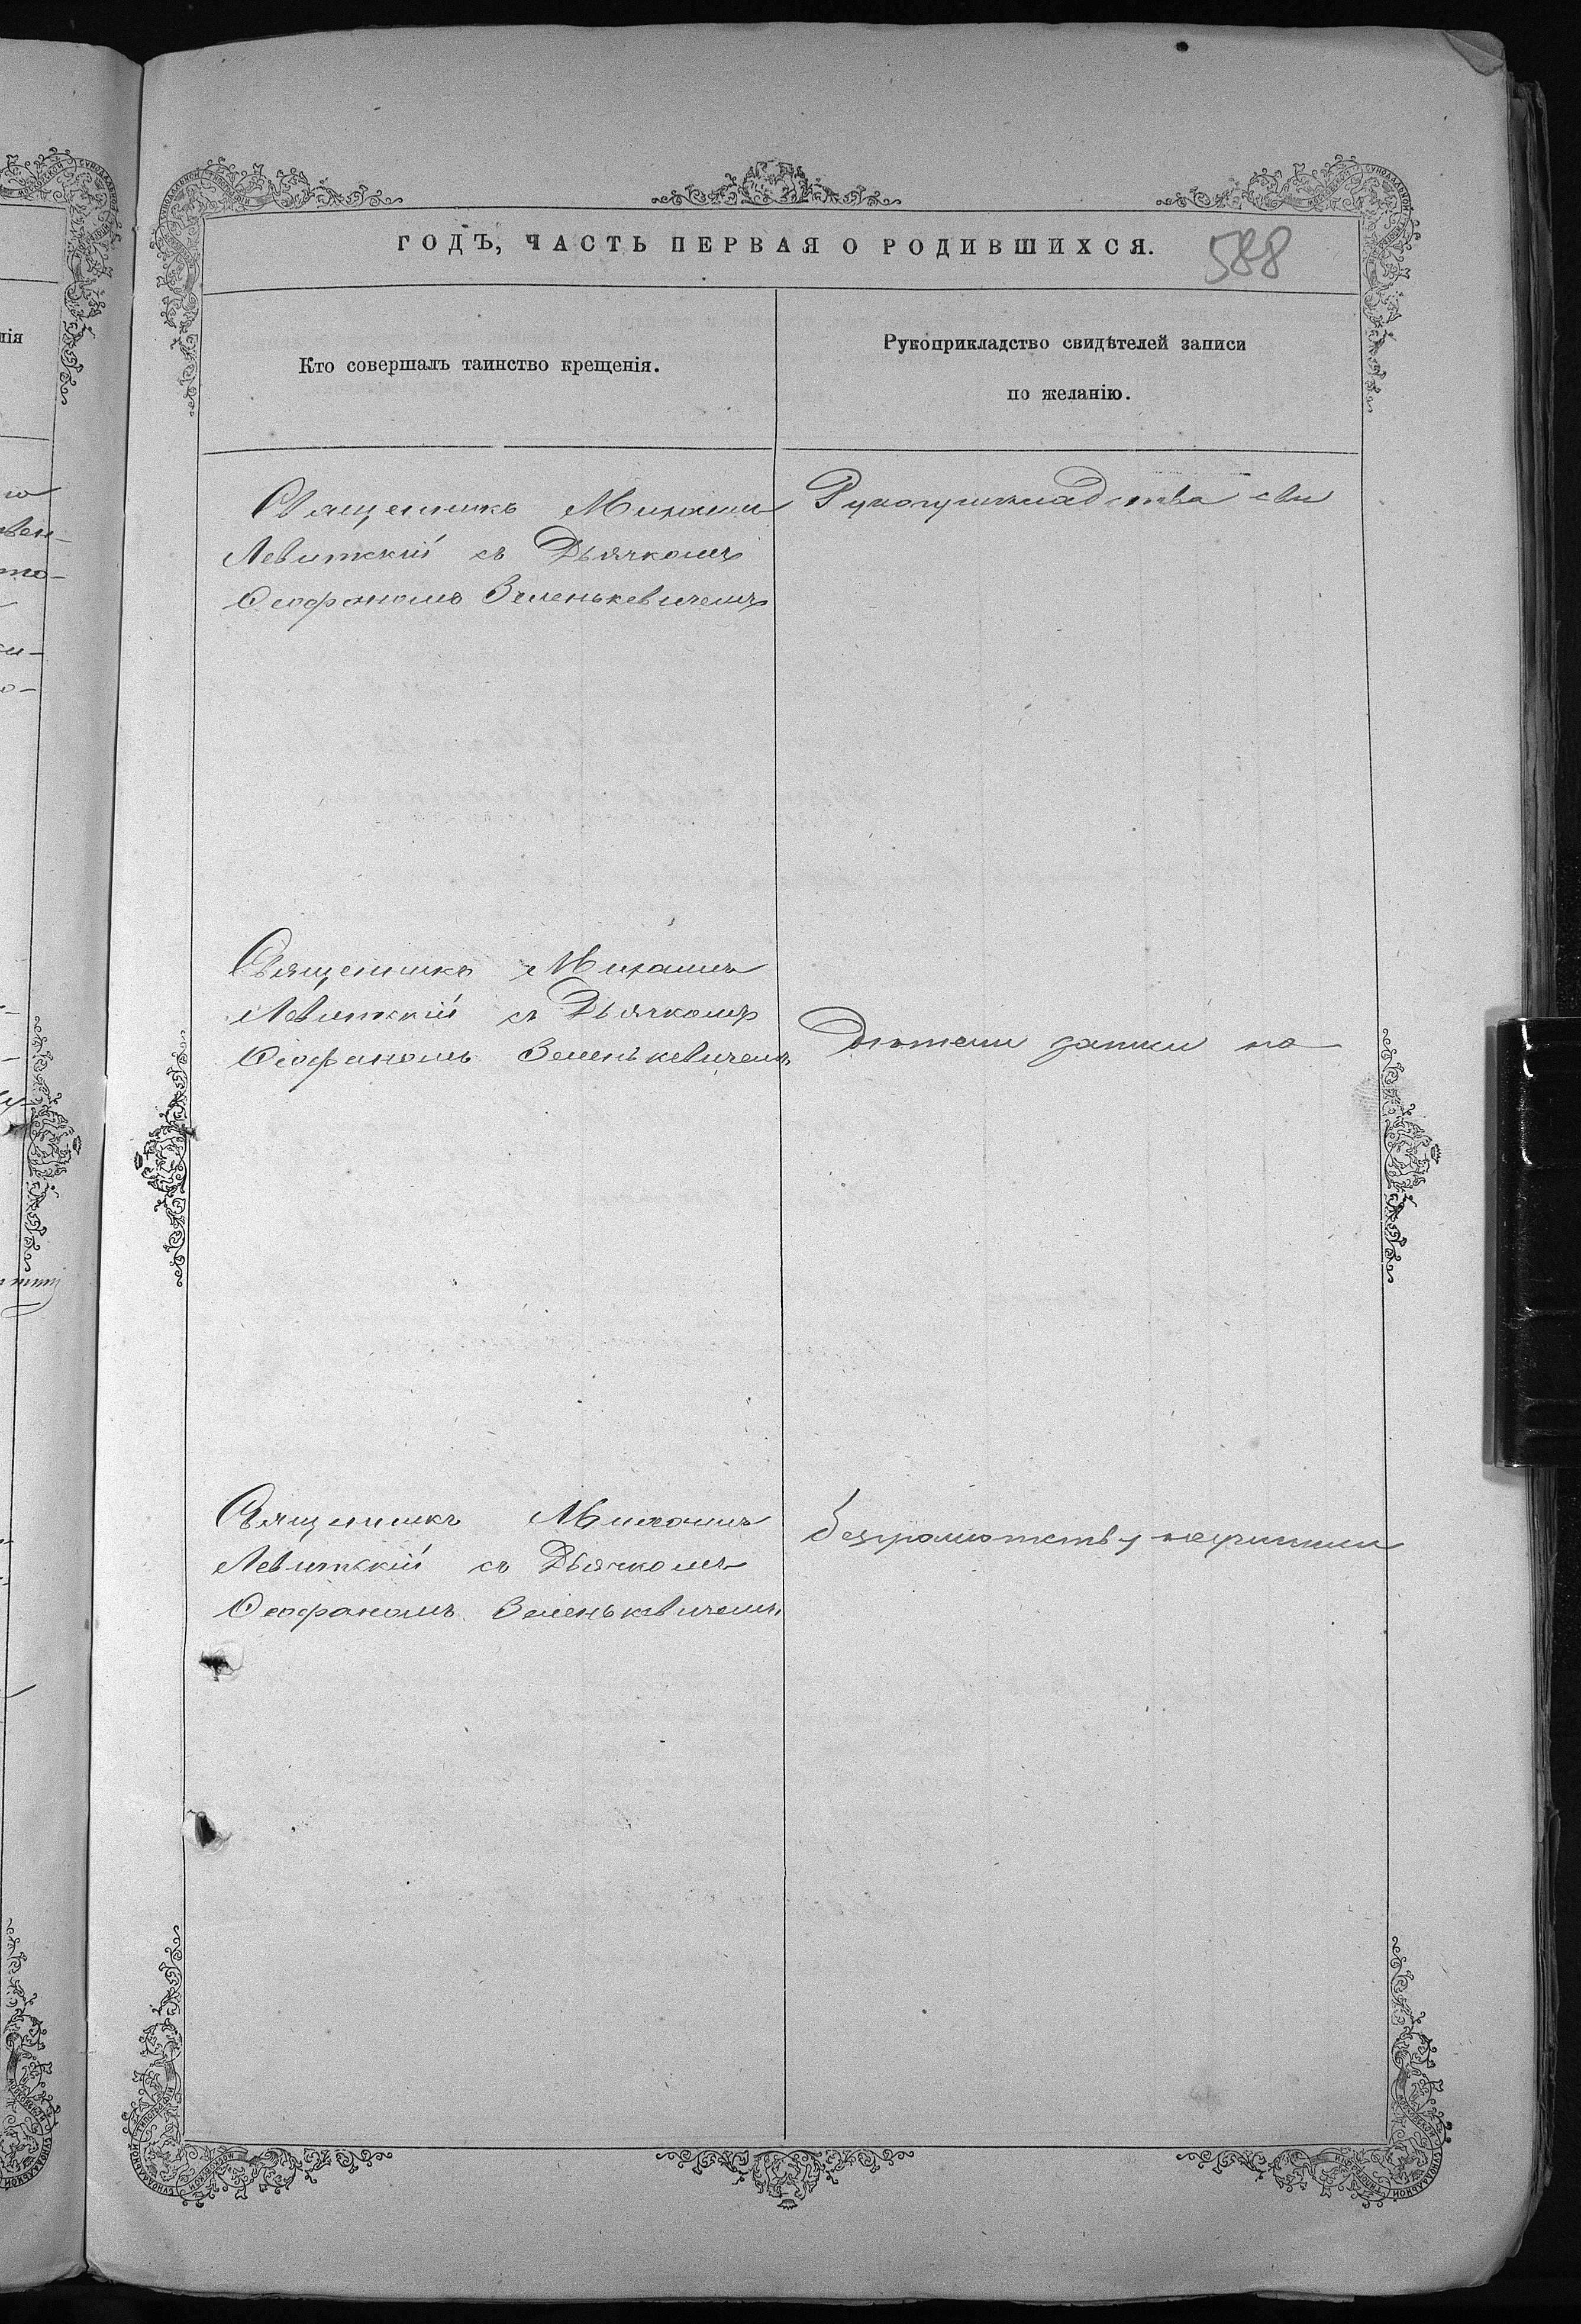 ГОДЪ, ЧАСТЬ ПЕРВАЯ О РОДИВШИХСЯ.
588
Кто совершалъ таинство крещенія.
Рукоприкладство свидѣтелей записи
по желанію.
Священникъ Михаилъ
Левитскій съ Дьячкомъ
Ѳеофаномъ Зеленькевичемъ
Рукоприкладства сви
Священникъ Михаилъ
Левитскій съ Дьячкомъ
Ѳеофаномъ Зеленькевичемъ
дѣтели записи по
Священникъ Михаилъ
Левитскій съ Дьячкомъ
Ѳеофаномъ Зеленькевичемъ
безграмотству неучинили